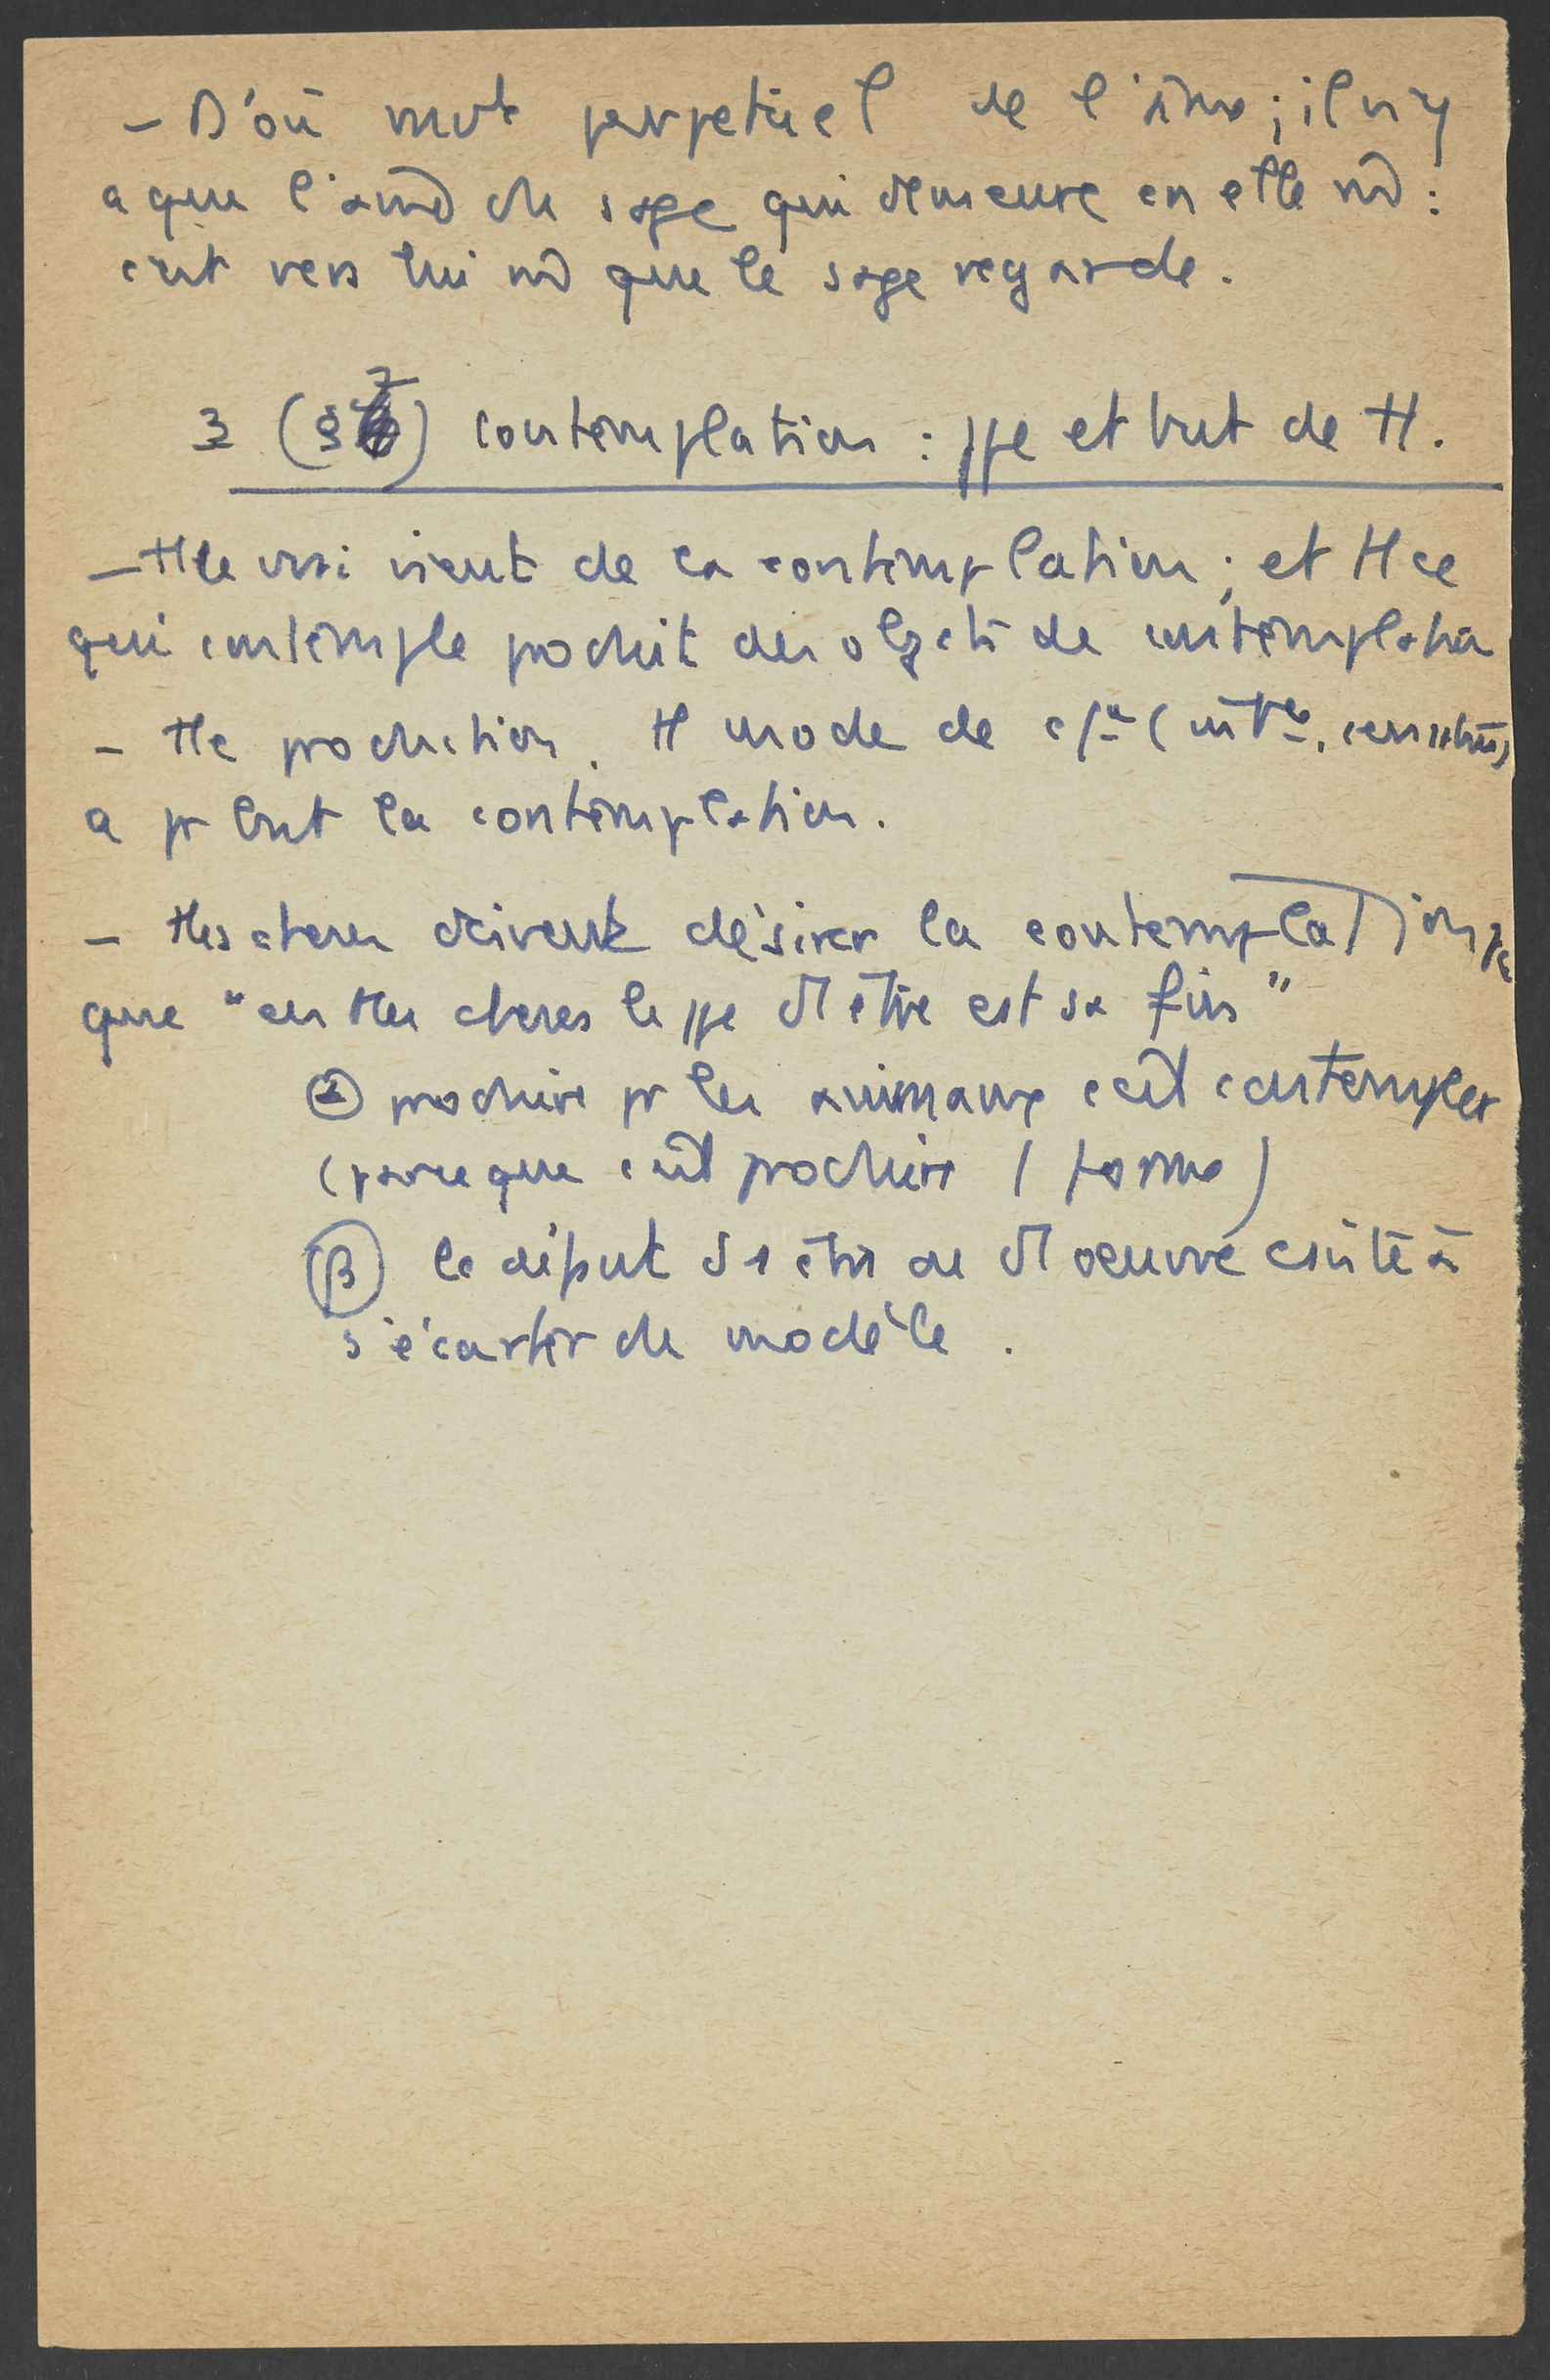 - D'où mvt perpetuel de l'âme ; il n'y
a que l'âme du sage qui demeure en elle m̂ :
c'est vers lui m̂ que le sage regarde.
3 (§ 7) contemplation : ppe et but de tt.
- tt le vrai vient de la contemplation ; et tt ce
qui contemple produit des objets de contemplation
- tte production, tt mode de
a pr but la contemplation.
- ttes choses doivent désirer la contemplation, pc
que "en ttes choses le ppe d'1 être est sa fin"
α produire pr les animaux c'est contempler
(parce que c'est produire 1 forme)
β le défaut d'1 être ou d'1 oeuvre consiste à
s'écarter du modèle.